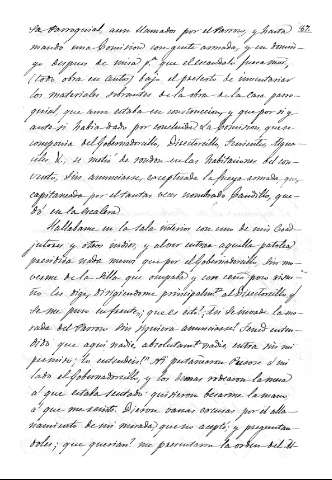 la Parroquial, aun llamados por el Parroco, y hasta 87
mando una Comision con gente armada, y en domin-
go despues de misa pª que el escandalo fuera mas,
(todo obra en autos) bajo el pretesto de inventariar
los materiales sobrantes de la obra de la casa parro-
quial, que aun estaba en construccion, y que por si y
ante si habia dado por concluida. La Comision, que se
componia del Gobernadorcillo, Directorcillo, Tenientes, Algua-
ciles &, se metió de rondon en las habitaciones del con-
vento, sin anunciarse, exceptuada la fuerza armada, que
capitaneada por el tantas veces nombrado Candido, que-
dó en la escalera.
Hallabame en la sala interior con uno de mis Coad-
jutores y otros indios, y al ver entrar aquella patulea
presidida nada menos que por el Gobernadorcillo sin mo-
verme de la silla que ocupaba y con ceño poco risue-
ño les dije, dirigiendome principalmte. al directorcillo q.
se me puso enfrente; que es esto? Asi se invade la mo-
rada del Parroco sin siquiera anunciarse? Tened enten-
dido que aqui nadie, absolutamte. nadie entra sin mi
permiso; lo entendeis?! Ni pestañearon. Pusose á mi
lado el Gobernadorcillo, y los demas rodearon la mesa
á que estaba sentado: quisieron besarme la mano
á que me resistí. Dieron varias escusas por el alla-
namiento de mi morada, que no acepté; y preguntan-
doles; que querian? me presentaron la orden del